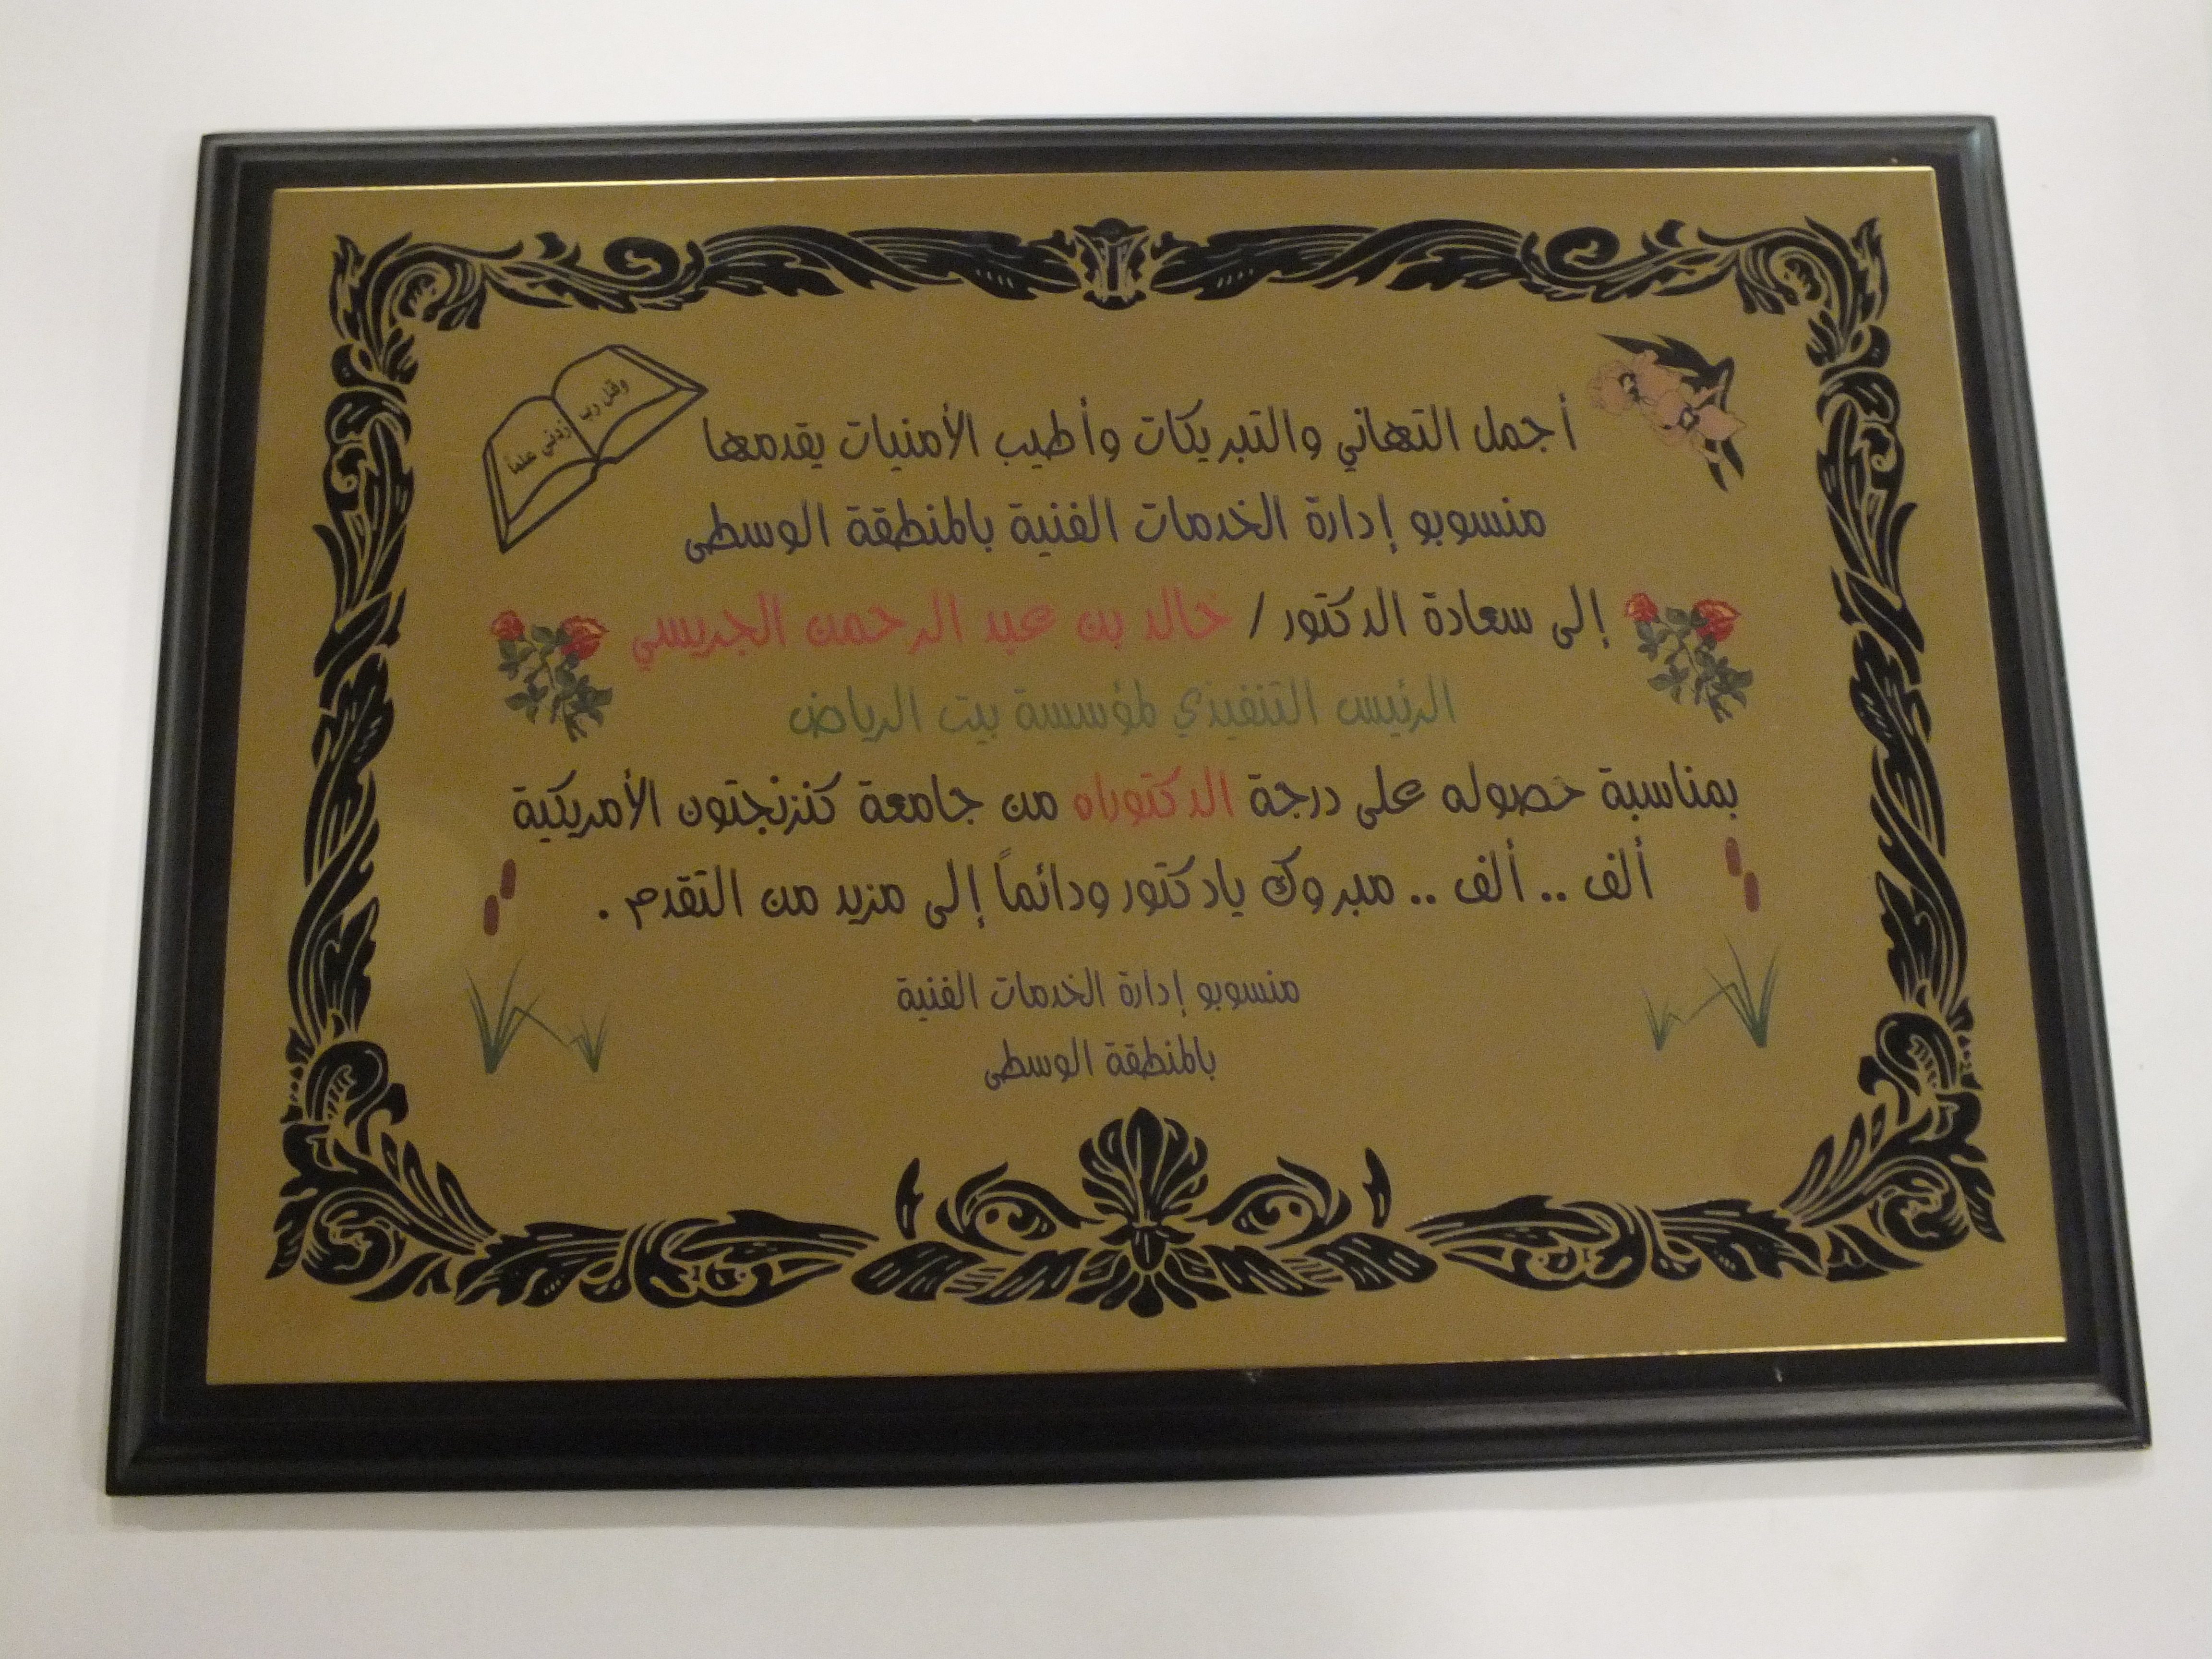 وقل رب
زدني علماً
أجمل التهاني والتبريكات وأطيب الأمنيات يقدمها
منسوبو إدارة الخدمات الفنية بالمنطقة الوسطى
إلى سعادة الدكتور / خالد بن عبد الرحمن الجريسي
الرئيس التنفيذي لمؤسسة بيت الرياض
بمناسبة حصوله على درجة الدكتوراه من جامعة كنزنجتون الأمريكية
ألف .. ألف .. مبروك يادكتور ودائماً إلى مزيد من التقدم .
منسوبو إدارة الخدمات الفنية
بالمنطقة الوسطى